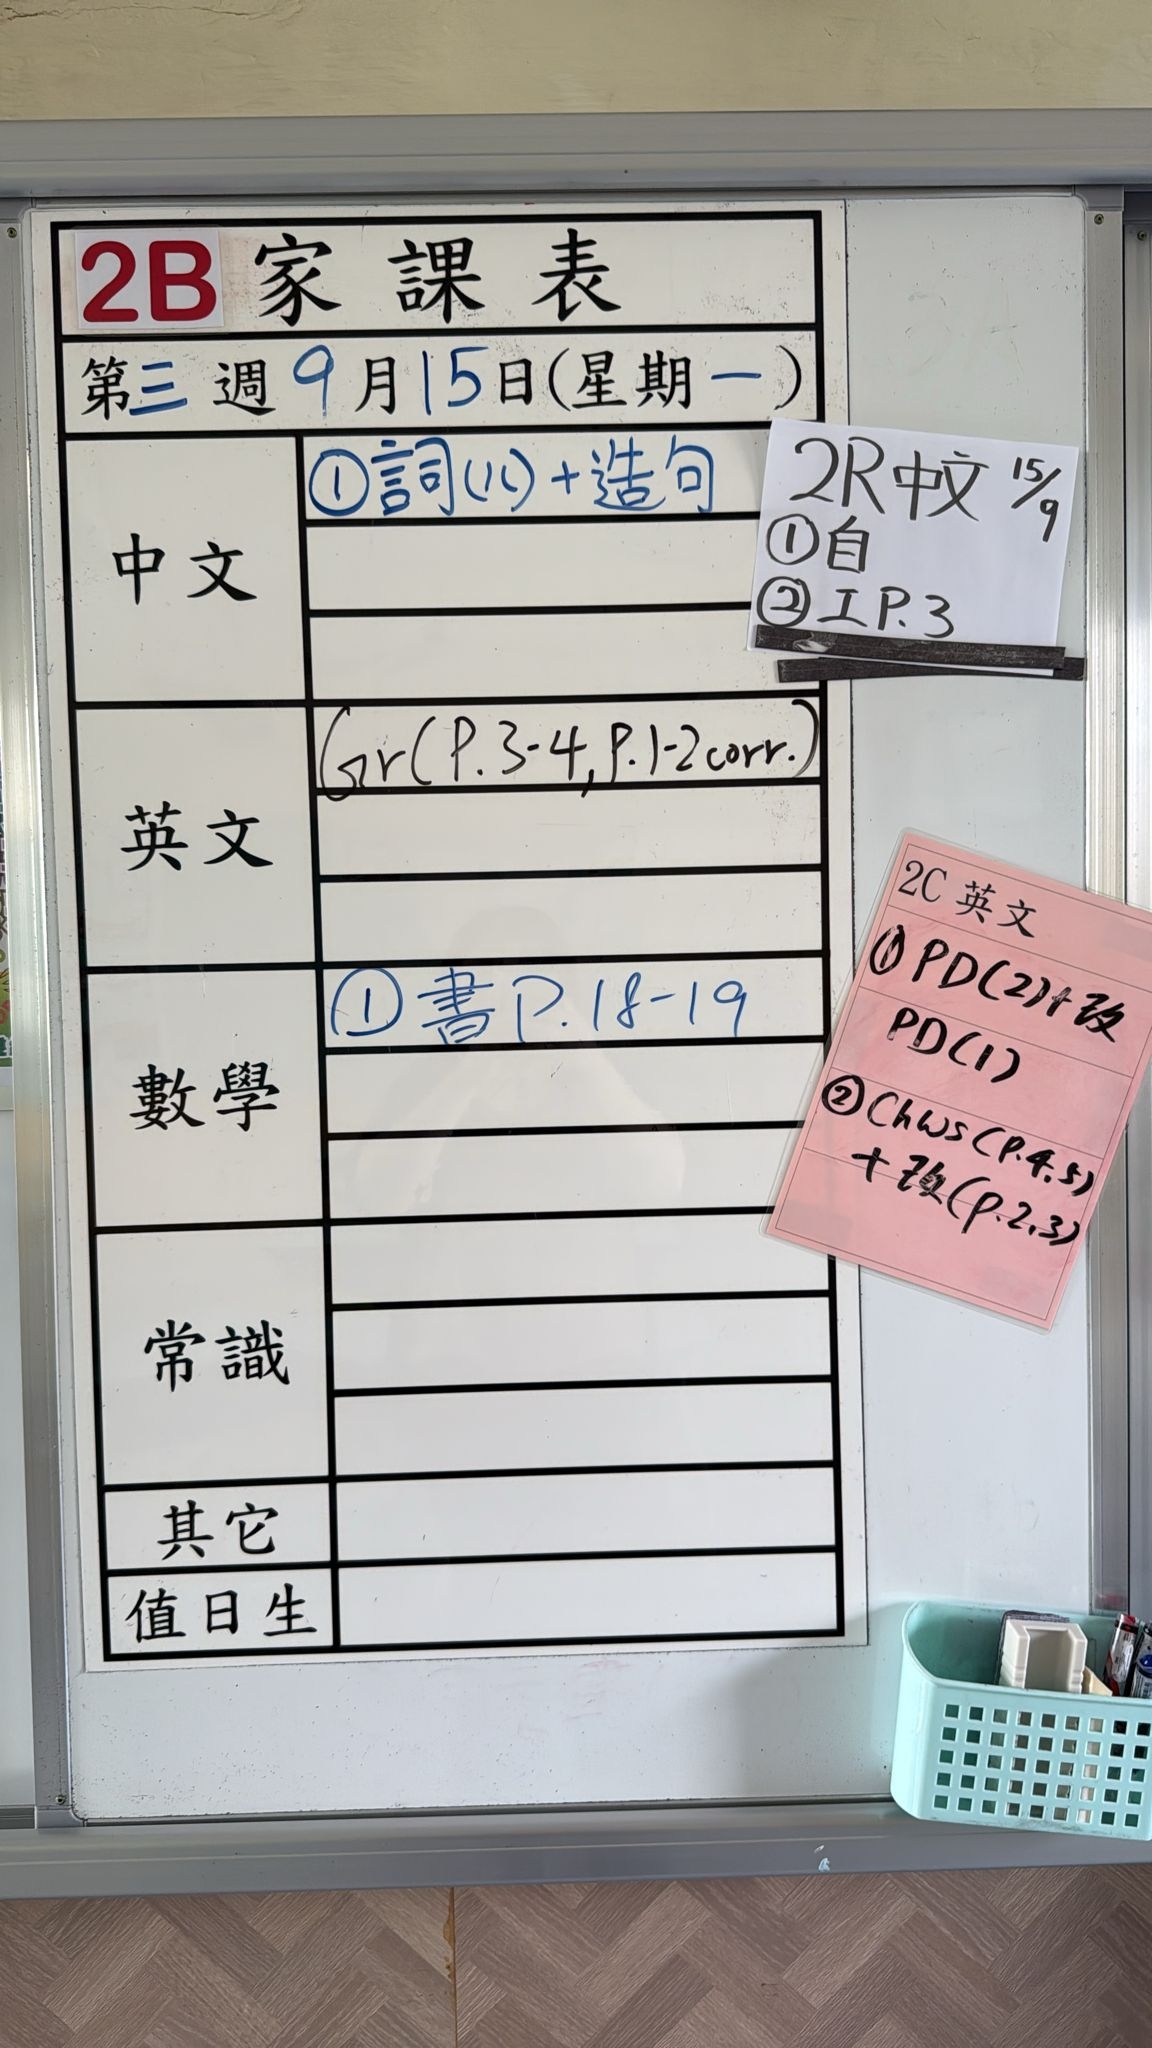 2B 家課表
第三週9月15日(星期一)
中文
①詞(八)+造句
英文
Gr(P.3-4,P.1-2corr.)
數學
①書P.18-19
常識
其它
值日生
2R中文 15/9
①自
②工P.3
2C 英文
①PD(2)+改
PD(1)
②Chws(P.4,5)
+改(p.2,3)